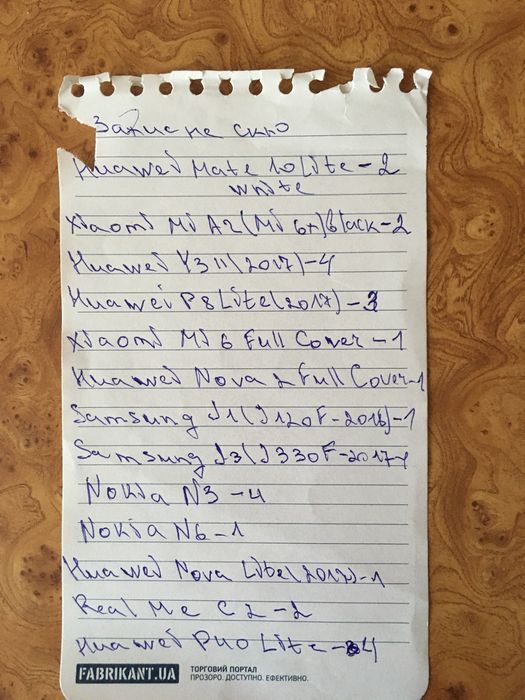 Захисне скло
Huawei Mate 10 Lite-2
white
Xiaomi Mi A2 (Mi 6x) black-2
Huawei Y3 II (2017)-4
Huawei P8 Lite (2017)-3
Xiaomi Mi 6 Full Cover-1
Huawei Nova 2 Full Cover-1
Samsung J1 (J120F-2016)-1
Samsung J3 (J330F-2017-
Nokia N3-4
Nokia N6-1
Huawei Nova Lite (2017)-1
Real Me C2-2
Huawei P40 Lite-4
FABRIKANT.UA
ТОРГОВИЙ ПОРТАЛ
ПРОЗОРО. ДОСТУПНО. ЕФЕКТИВНО.